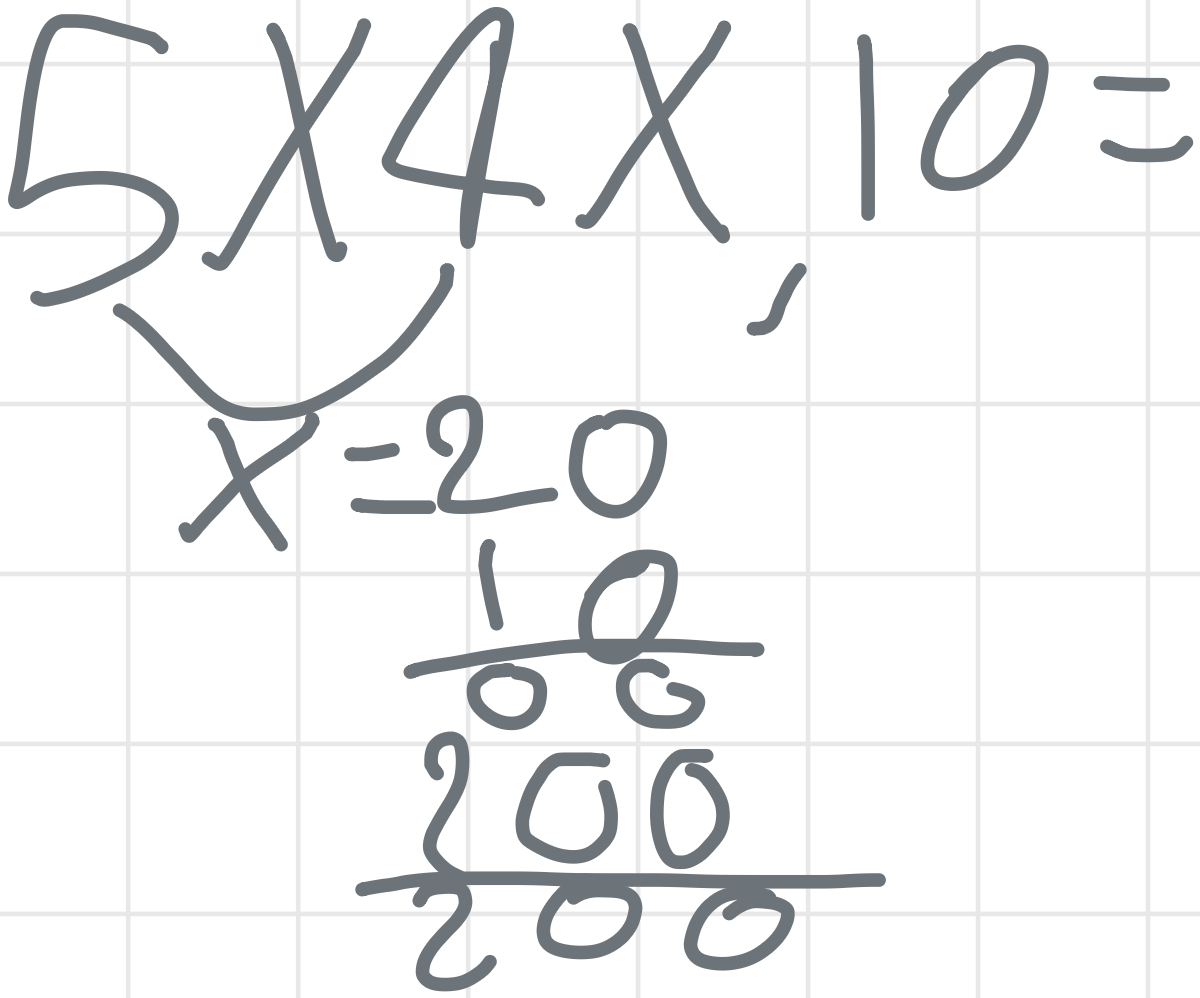 5X4X10=
,
X=20
10
00
200
200